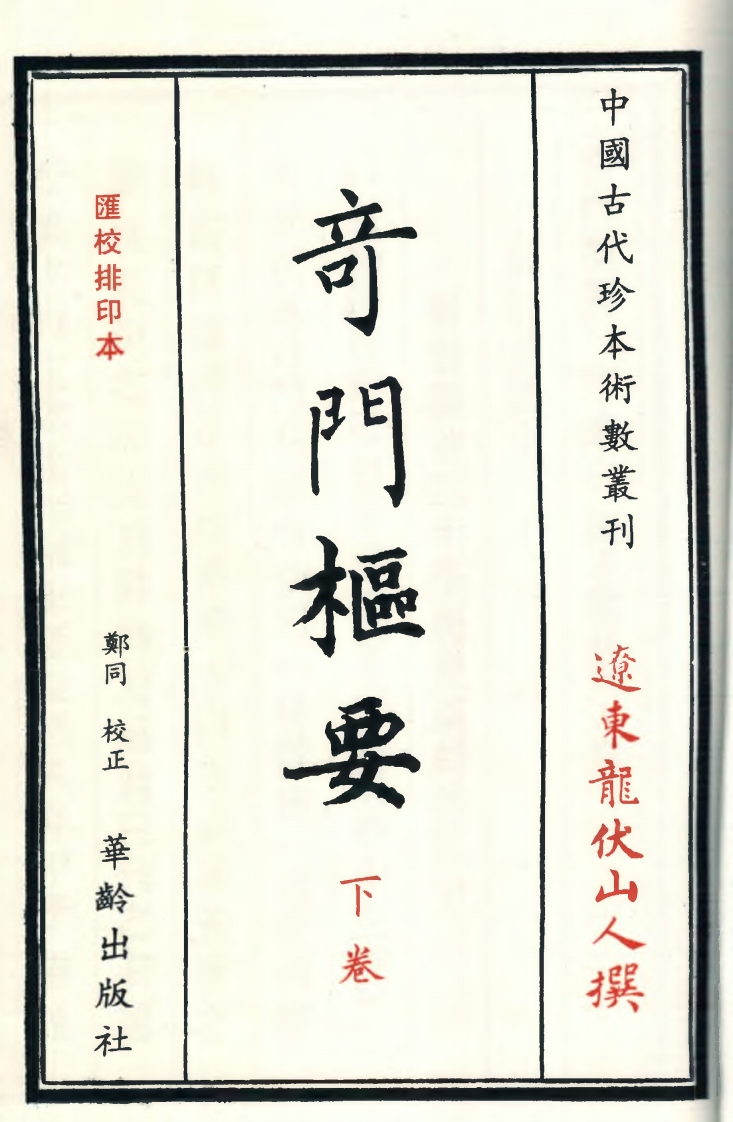 中國古代珍本術數叢刊
遼東龍伏山人撰
奇門樞要
下卷
匯校排印本
鄭同 校正
華齡出版社